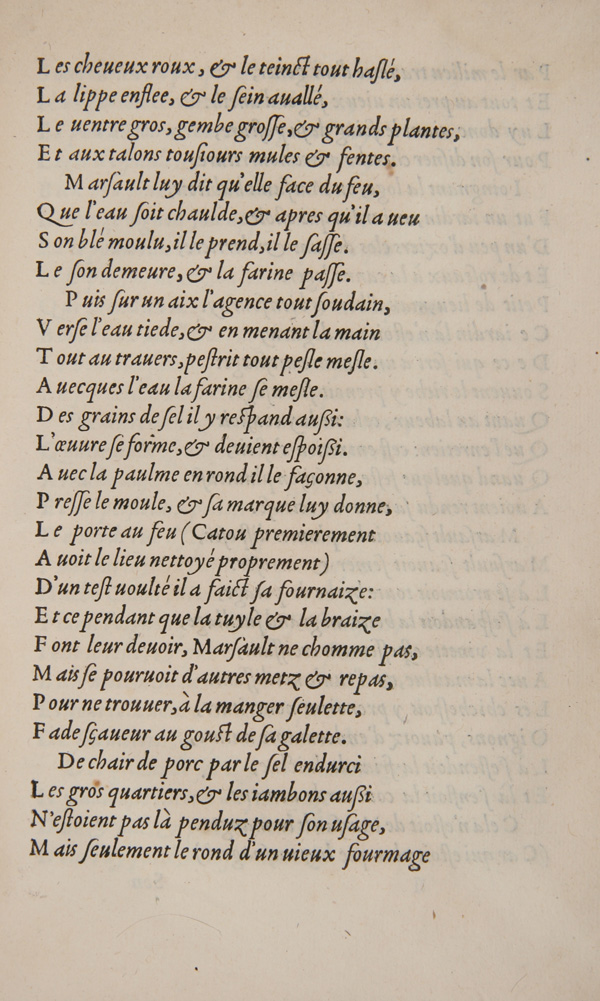 Les cheueux roux, & le teinct tout haſlé,
La lippe enflee, & le ſein auallé,
Le uentre gros, gembe groſſe, & grands plantes,
Et aux talons touſiours mules & fentes.
Marſault luy dit qu'elle face du feu,
Que l'eau ſoit chaulde, & apres qu'il a ueu
Son blé moulu, il le prend, il le ſaſſe.
Le ſon demeure, & la farine paſſe.
Puis ſur un aix l'agence tout ſoudain,
Verſe l'eau tiede, & en menant la main
Tout au trauers, peſtrit tout peſle meſle.
Auecques l'eau la farine ſe meſle.
Des grains de ſel il y reſpand außi:
L'œuure ſe forme, & deuient eſpoißi.
Auec la paulme en rond il le façonne,
Preſſe le moule, & ſa marque luy donne,
Le porte au feu (Catou premierement
Auoit le lieu nettoyé proprement)
D'un teſt uoulté il a faict ſa fournaize:
Et ce pendant que la tuyle & la braize
Font leur deuoir, Marſault ne chomme pas,
Mais ſe pouruoit d'autres metz & repas,
Pour ne trouuer, à la manger ſeulette,
Fade ſçaueur au gouſt de ſa galette.
De chair de porc par le ſel endurci
Les gros quartiers, & les iambons außi
N'eſtoient pas là penduz pour ſon uſage,
Mais ſeulement le rond d'un uieux fourmage